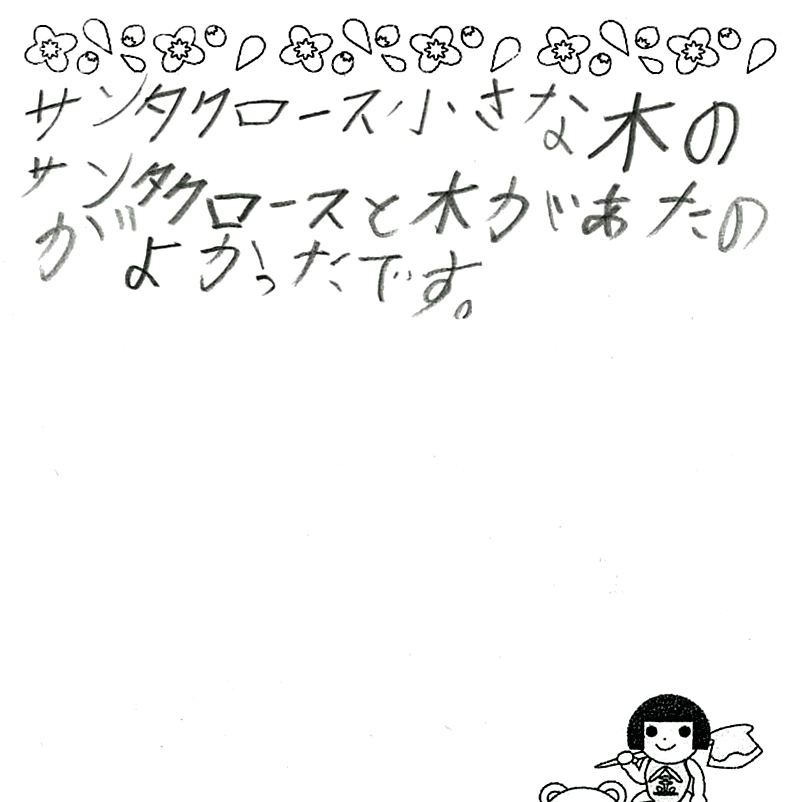 サンタクロース小さな木の
サンタクロースと木があたの
がよかったです。
金